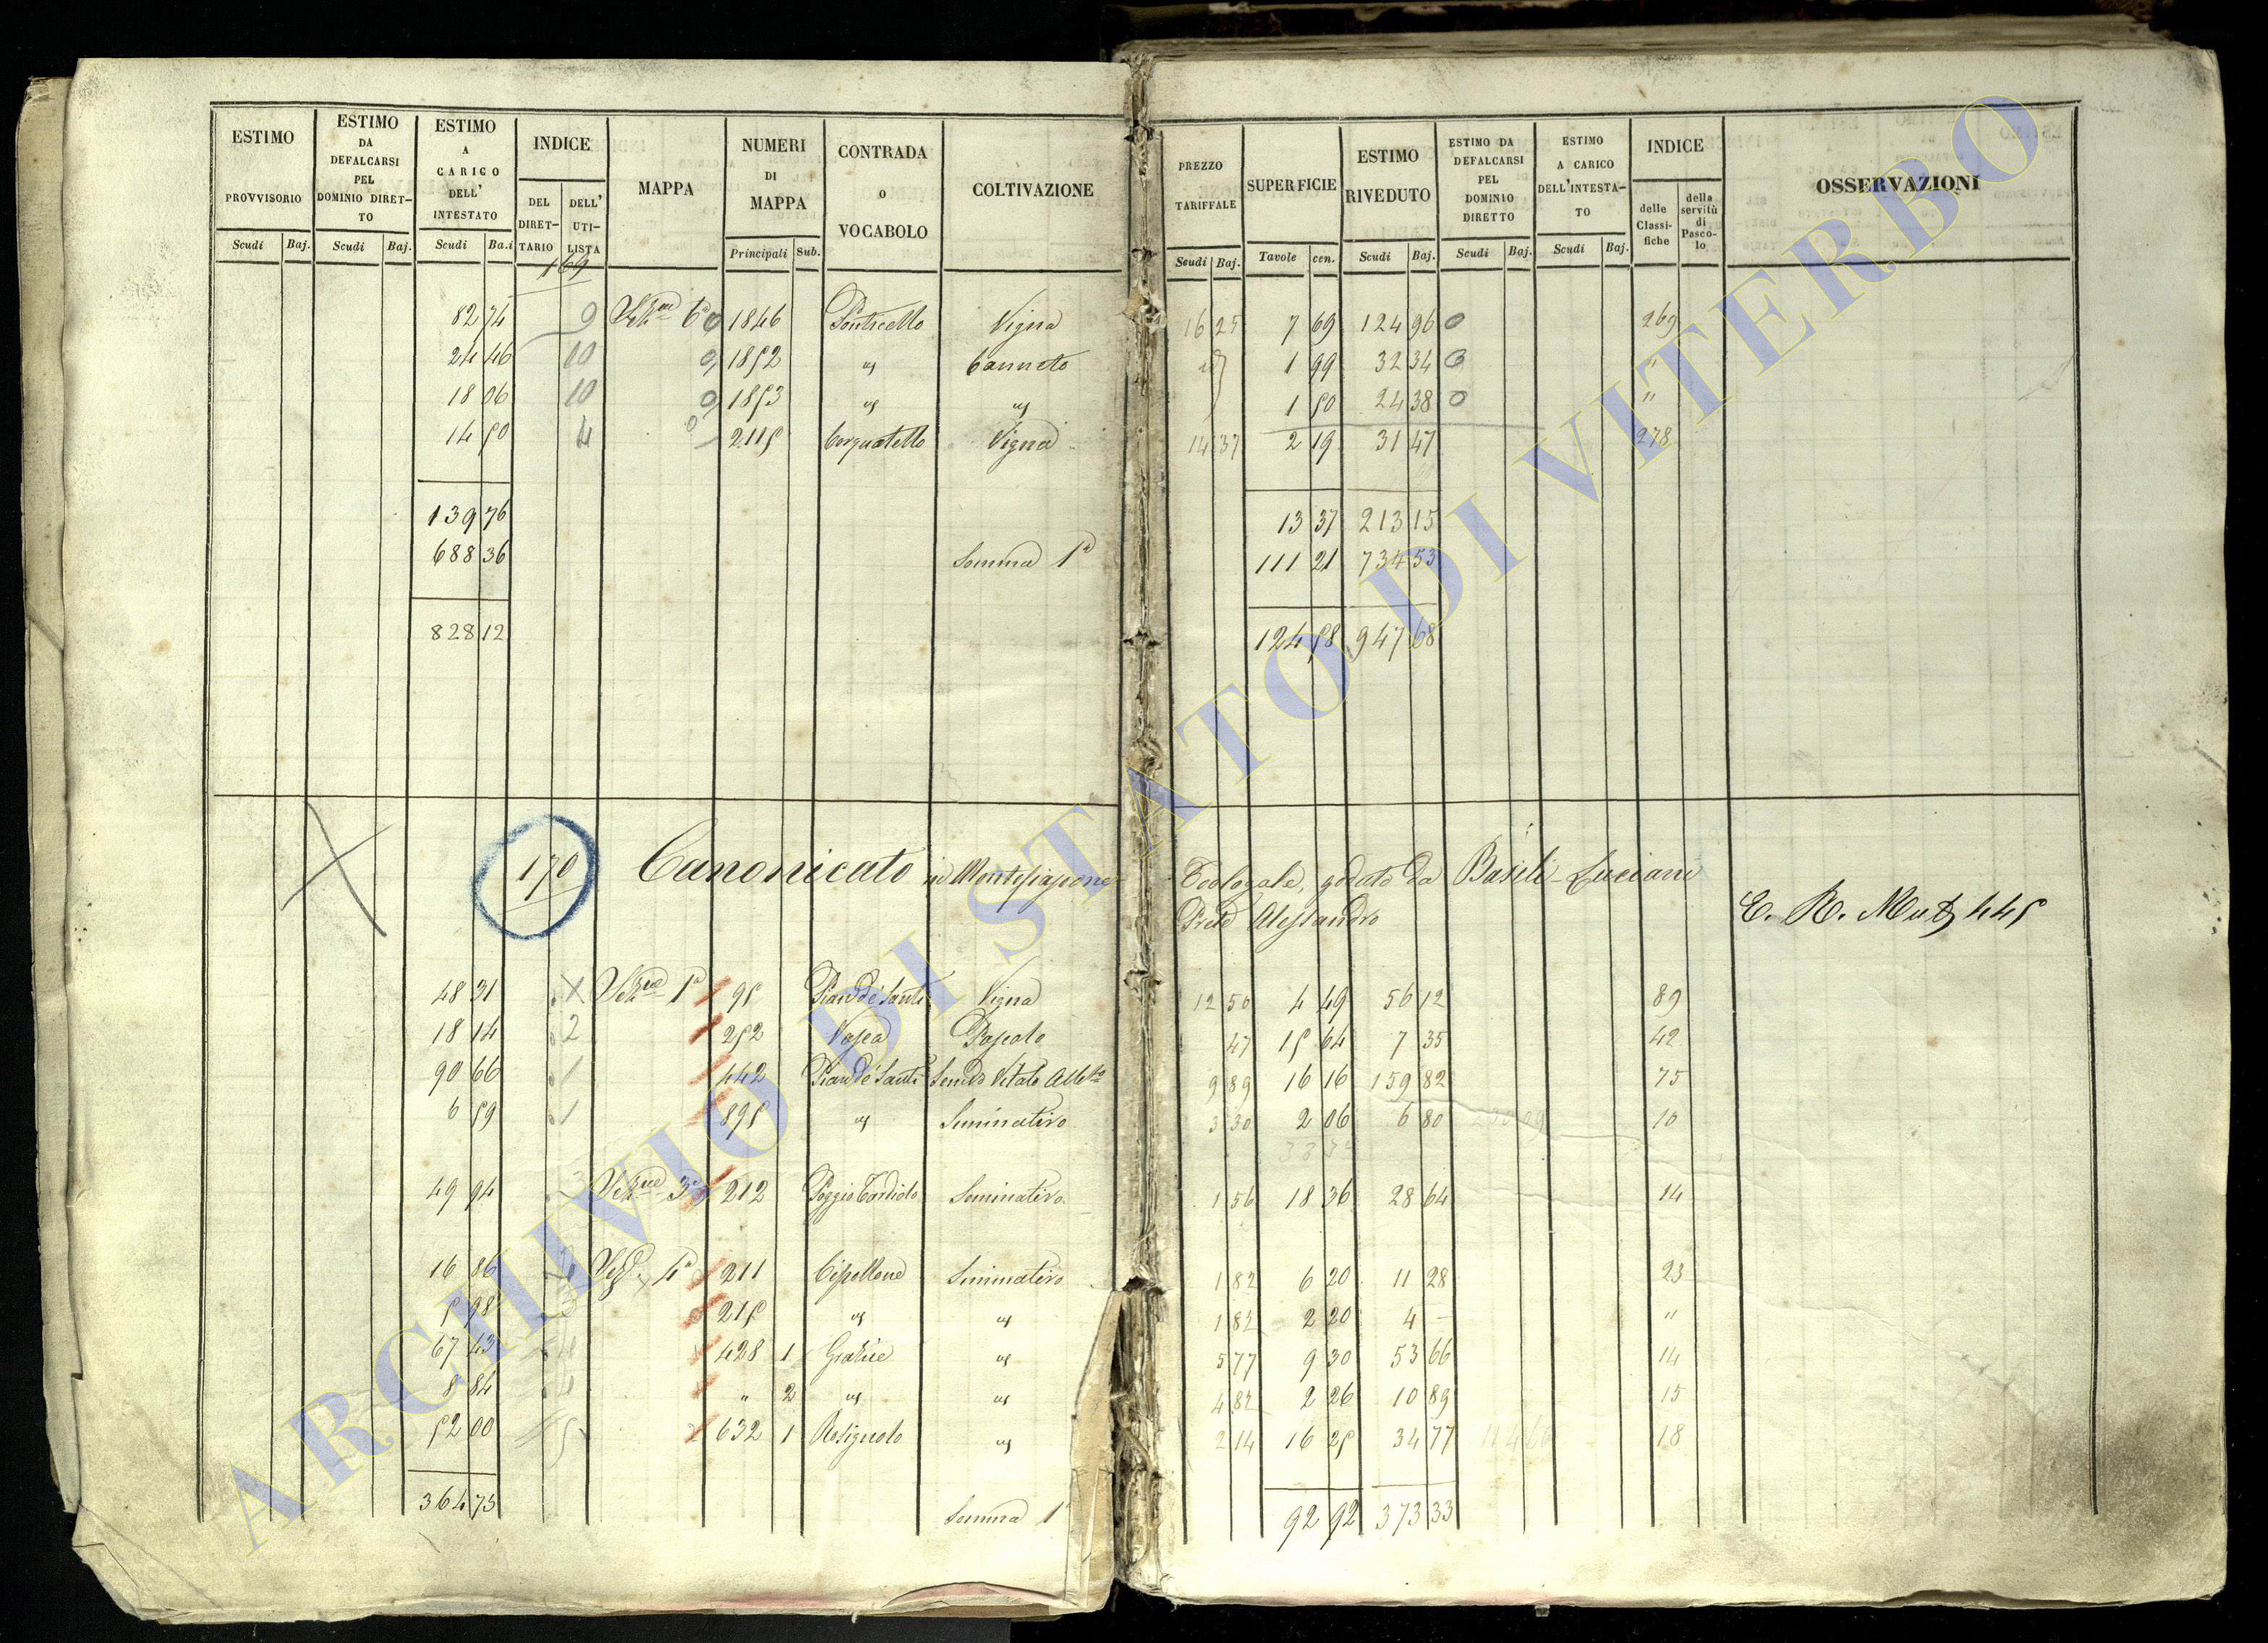 ESTIMO PROVVISORIO Scudi Baj.
ESTIMO DA DEFALCARSI PEL DOMINIO DIRETTO Scudi Baj.
ESTIMO A CARICO DELL' INTESTATO Scudi Ba.i
INDICE DEL DIRETTARIO DELL' UTILISTA
MAPPA
NUMERI DI MAPPA Principali Sub.
CONTRADA o VOCABOLO
COLTIVAZIONE
PREZZO TARIFFALE Scudi Baj.
SUPERFICIE Tavole cen.
ESTIMO RIVEDUTO Scudi Baj.
ESTIMO DA DEFALCARSI PEL DOMINIO DIRETTO Scudi Baj.
ESTIMO A CARICO DELL'INTESTATO Scudi Baj.
INDICE delle Classifiche della servitù di Pascolo
OSSERVAZIONI
169
82 74 9 6a 0 1846 Ponticello Vigna 16 25 7 69 124 96 0 269
24 46 10 0 1852 " Canneto 1 99 32 34 0 "
18 06 10 0 1853 " " 1 50 24 38 0 "
14 50 4 0 2115 Vigna 14 37 2 19 31 47 278
139 76 13 37 213 15
688 36 Somma 1a 111 21 734 53
828 12 124 58 947 68
170 Canonicato in Montefiascone Teologale, goduto da Basili Luciani
Prete Alessandro
E. R. Mut 445
48 31 X 1a 95 Pian de' Santi Vigna 12 50 4 49 56 12 89
18 14 2 252 Pascolo 47 15 64 7 35 42
90 66 1 442 Pian de' Santi Semvo Vitato 9 89 16 16 159 82 75
6 59 1 895 " Seminativo 3 30 2 06 6 80 10
49 94 3 3a 212 Poggio Seminativo 1 56 18 36 28 64 14
16 86 4a 211 Cipollone Seminativo 1 82 6 20 11 28 23
5 98 3 215 " " 1 82 2 20 4 – "
67 43 4 428 1 Grazie " 5 77 9 30 53 66 14
8 84 4 " 2 " " 4 82 2 26 10 89 15
52 00 5 632 1 Rosignolo " 2 14 16 25 34 77 18
364 73 Somma 1a 92 92 373 33
ARCHIVIO DI STATO DI VITERBO